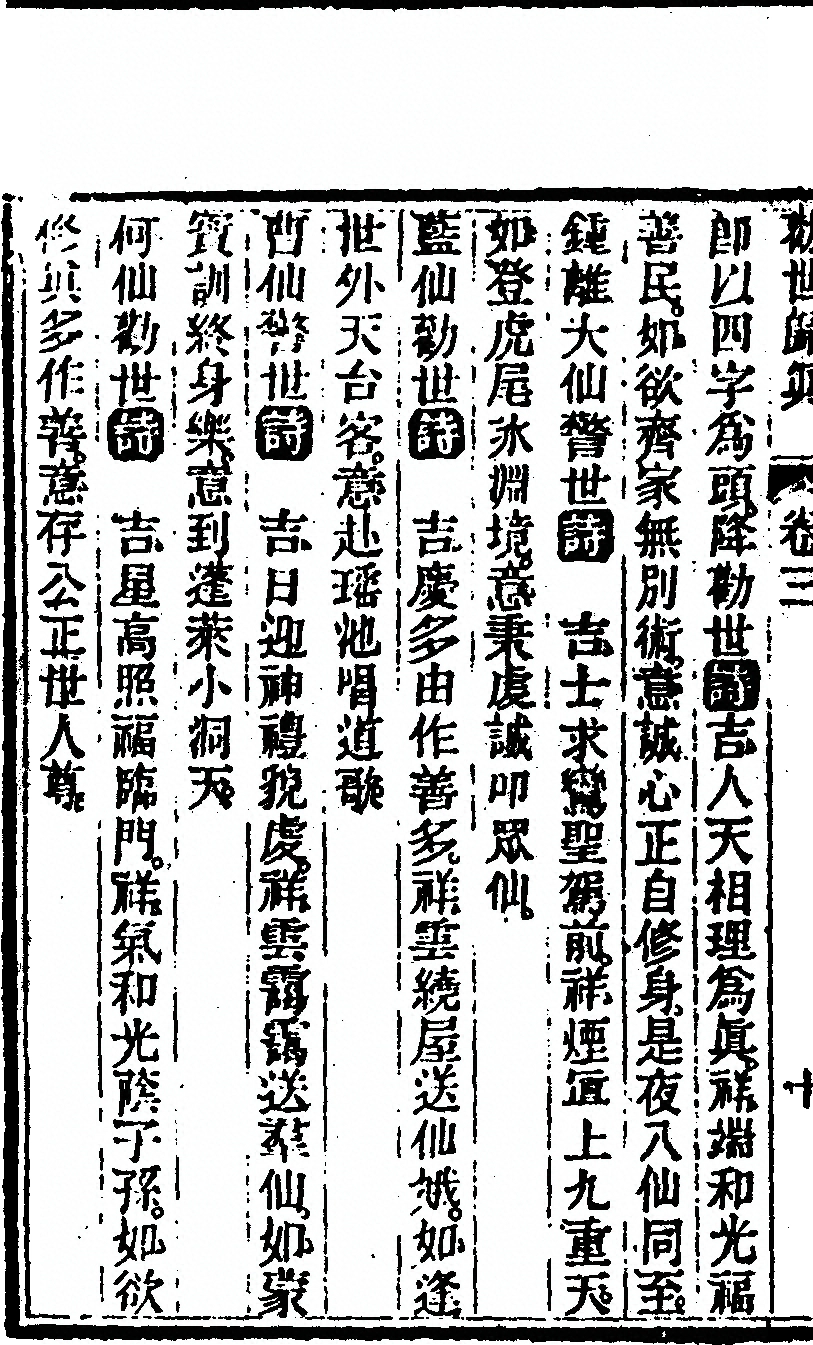 勸世歸眞　卷三　十
卽以四字爲頭。降勸世詩吉人天相理爲眞。祥端和光福
善民。如欲齊家無別術。意誠心正自修身。是夜八仙同至。
鍾離大仙警世詩　吉士求鸞聖駕前。祥煙直上九重天。
如登虎尾氷淵境。意秉虔誠叩眾仙。
藍仙勸世詩　吉慶多由作善多。祥雲繞屋送仙娥。如逢
世外天台客。意赴瑤池唱道歌
曹仙警世詩　吉日迎神禮貌虔。祥雲靄靄送羣仙。如蒙
寶訓終身樂。意到蓬萊小洞天。
何仙勸世詩　吉星高照福臨門。祥氣和光蔭子孫。如欲
修眞多作善。意存公正世人尊。